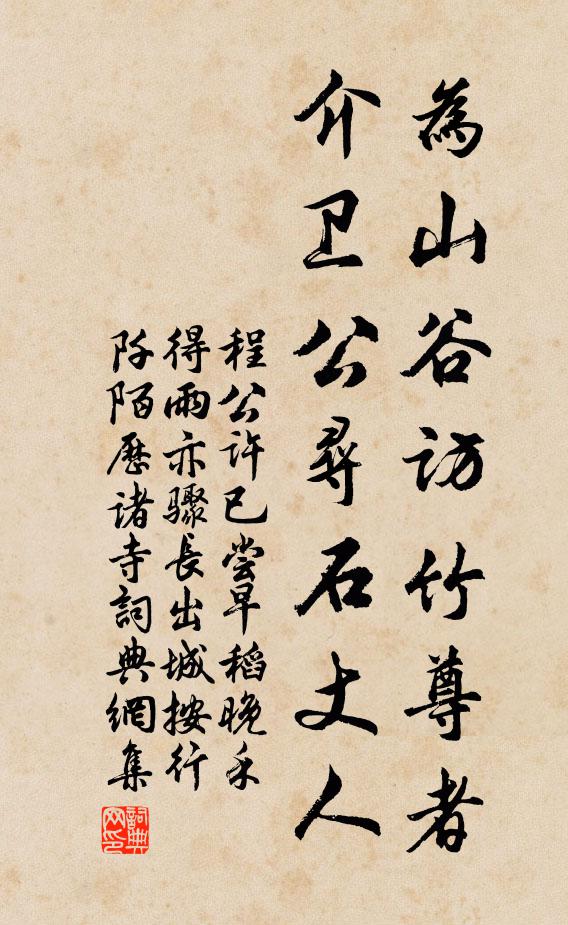 為山谷訪竹尊者
介卫公尋石丈人
程公許已嘗早稻晚禾
得雨亦驟長出城按行
阡陌歷諸寺詞典網集
詞典网印